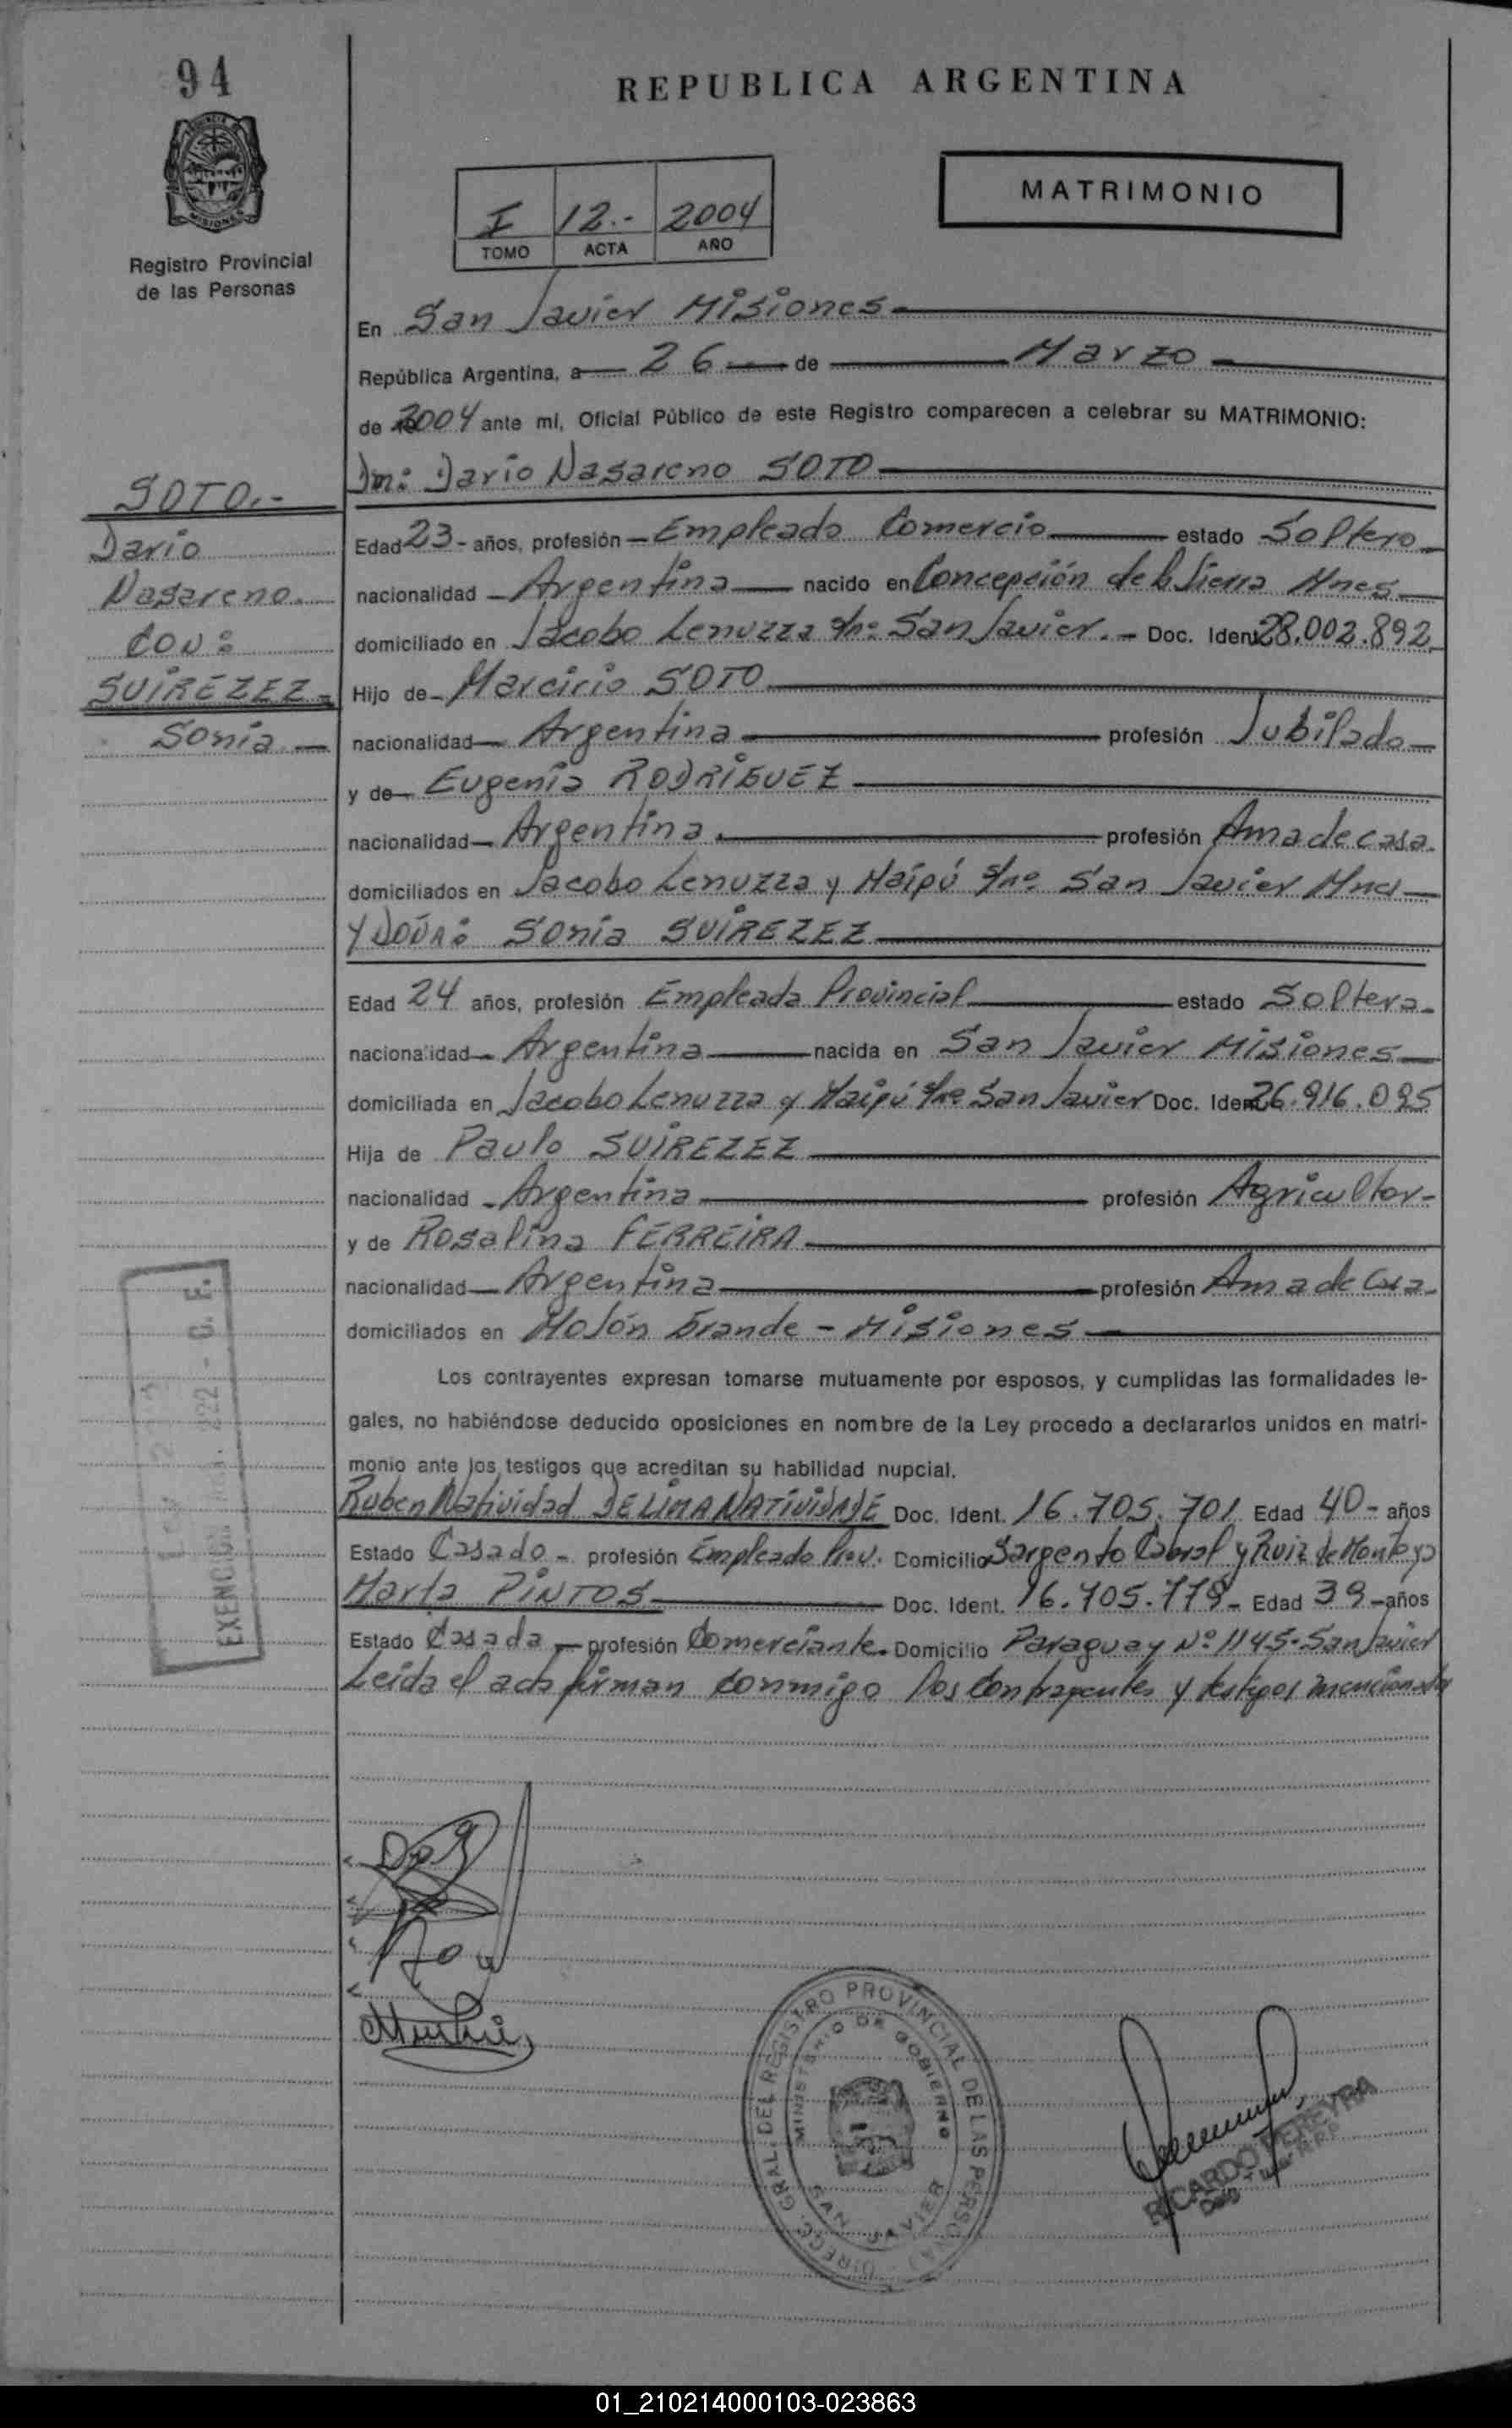 94
REPUBLICA ARGENTINA
MATRIMONIO
MISIONES
I 12.- 2004
TOMO ACTA AÑO
Registro Provincial
de las Personas
En San Javier Misiones
República Argentina, a 26 de Marzo
de 2004 ante mí, Oficial Público de este Registro comparecen a celebrar su MATRIMONIO:
Dn: Dario Nasareno SOTO
SOTO.-
Dario
Nasareno.
CON:
SUIREZEZ-
Sonia
Edad 23- años, profesión Empleado Comercio estado Soltero
nacionalidad Argentina nacido en Concepción de la Sierra Mnes
domiciliado en Jacobo Lenuzza s/nº San Javier.- Doc. Ident. 28.002.892
Hijo de Marcirio SOTO
nacionalidad Argentina profesión Jubilado
y de Eugenia RODRIGUEZ
nacionalidad Argentina profesión Ama de casa
domiciliados en Jacobo Lenuzza y Maipú s/nº San Javier Mnes
Y DOÑA: Sonia SUIREZEZ
Edad 24 años, profesión Empleada Provincial estado Soltera
nacionalidad Argentina nacida en San Javier Misiones
domiciliada en Jacobo Lenuzza y Maipú s/nº San Javier Doc. Ident. 26.916.095
Hija de Paulo SUIREZEZ
nacionalidad Argentina profesión Agricultor-
y de Rosalina FERREIRA
nacionalidad Argentina profesión Ama de Casa
domiciliados en Mojón Grande - Misiones
Los contrayentes expresan tomarse mutuamente por esposos, y cumplidas las formalidades le-
gales, no habiéndose deducido oposiciones en nombre de la Ley procedo a declararlos unidos en matri-
monio ante los testigos que acreditan su habilidad nupcial.
Ruben Natividad DE LIMA NATIVIDADE Doc. Ident. 16.705.701 Edad 40- años
Estado Casado- profesión Empleado Prov. Domicilio Sargento Cabral y Ruiz de Montoya
Marta PINTOS Doc. Ident. 16.705.779- Edad 39- años
Estado Casada profesión Comerciante. Domicilio Paraguay Nº 1145- San Javier
Leída el acta firman conmigo los contrayentes y testigos mencionados
EXENCION
DIRECC. GRAL. DEL REGISTRO PROVINCIAL DE LAS PERSONAS
MINISTERIO DE GOBIERNO
SAN JAVIER
RICARDO PEREYRA
01_210214000103-023863